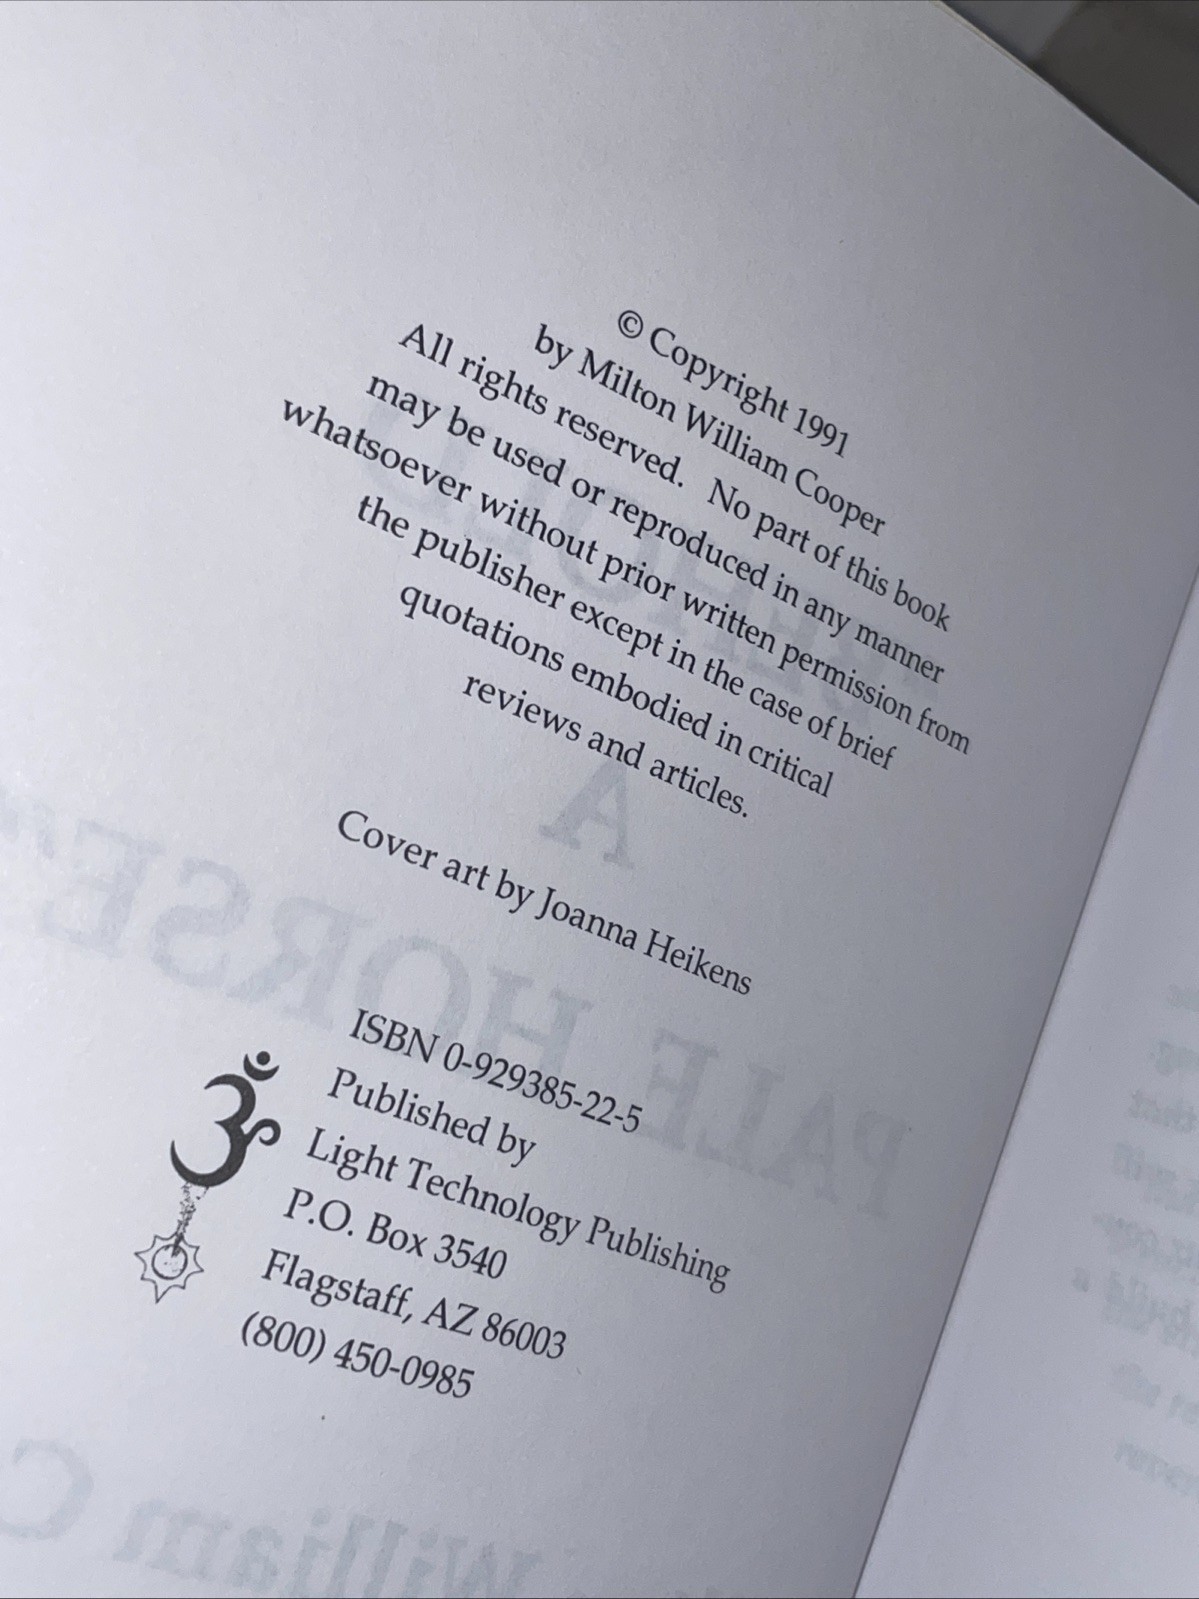 © Copyright 1991
by Milton William Cooper
All rights reserved. No part of this book
may be used or reproduced in any manner
whatsoever without prior written permission from
the publisher except in the case of brief
quotations embodied in critical
reviews and articles.
Cover art by Joanna Heikens
ISBN 0-929385-22-5
Published by
Light Technology Publishing
P.O. Box 3540
Flagstaff, AZ 86003
(800) 450-0985
ॐ
"BEHOLD
A
PALE HORSE"
William C